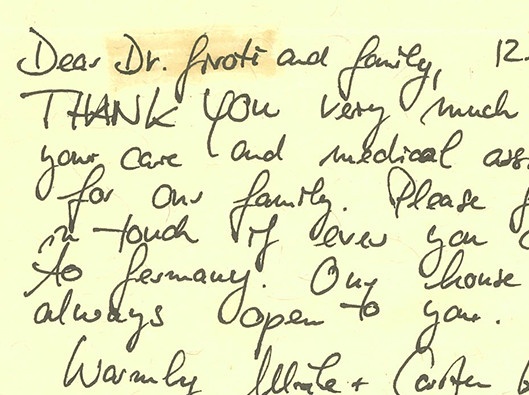 Dear Dr. Giroti and family, 12.
THANK YOU very much
your care and medical assi
for our family. Please g
in touch if ever you c
to Germany. Our house
always open to you.
Warmly + Carsten